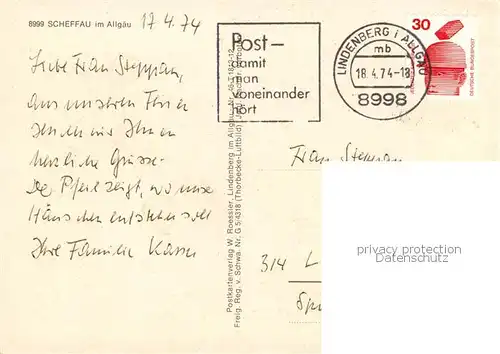 8999 SCHEFFAU im Allgäu
17.4.74
Liebe Frau Steppan,
aus unseren Ferien
senden wir Ihnen
herzliche Grüsse.
Der Pfeil zeigt, wo unser
Häuschen entstehen soll
Ihre Familie
Postkartenverlag W. Roessler, Lindenberg im Allgäu
Freig. Reg. v. Schwa. Nr. G 5/4318 (Thorbecke-Luftbild)
Post—
damit
man
voneinander
hört
LINDENBERG i ALLGÄU
mb
18.4.74-18
8998
30
DEUTSCHE BUNDESPOST
Frau Steppan
314 L
privacy protection
DELCAMPE